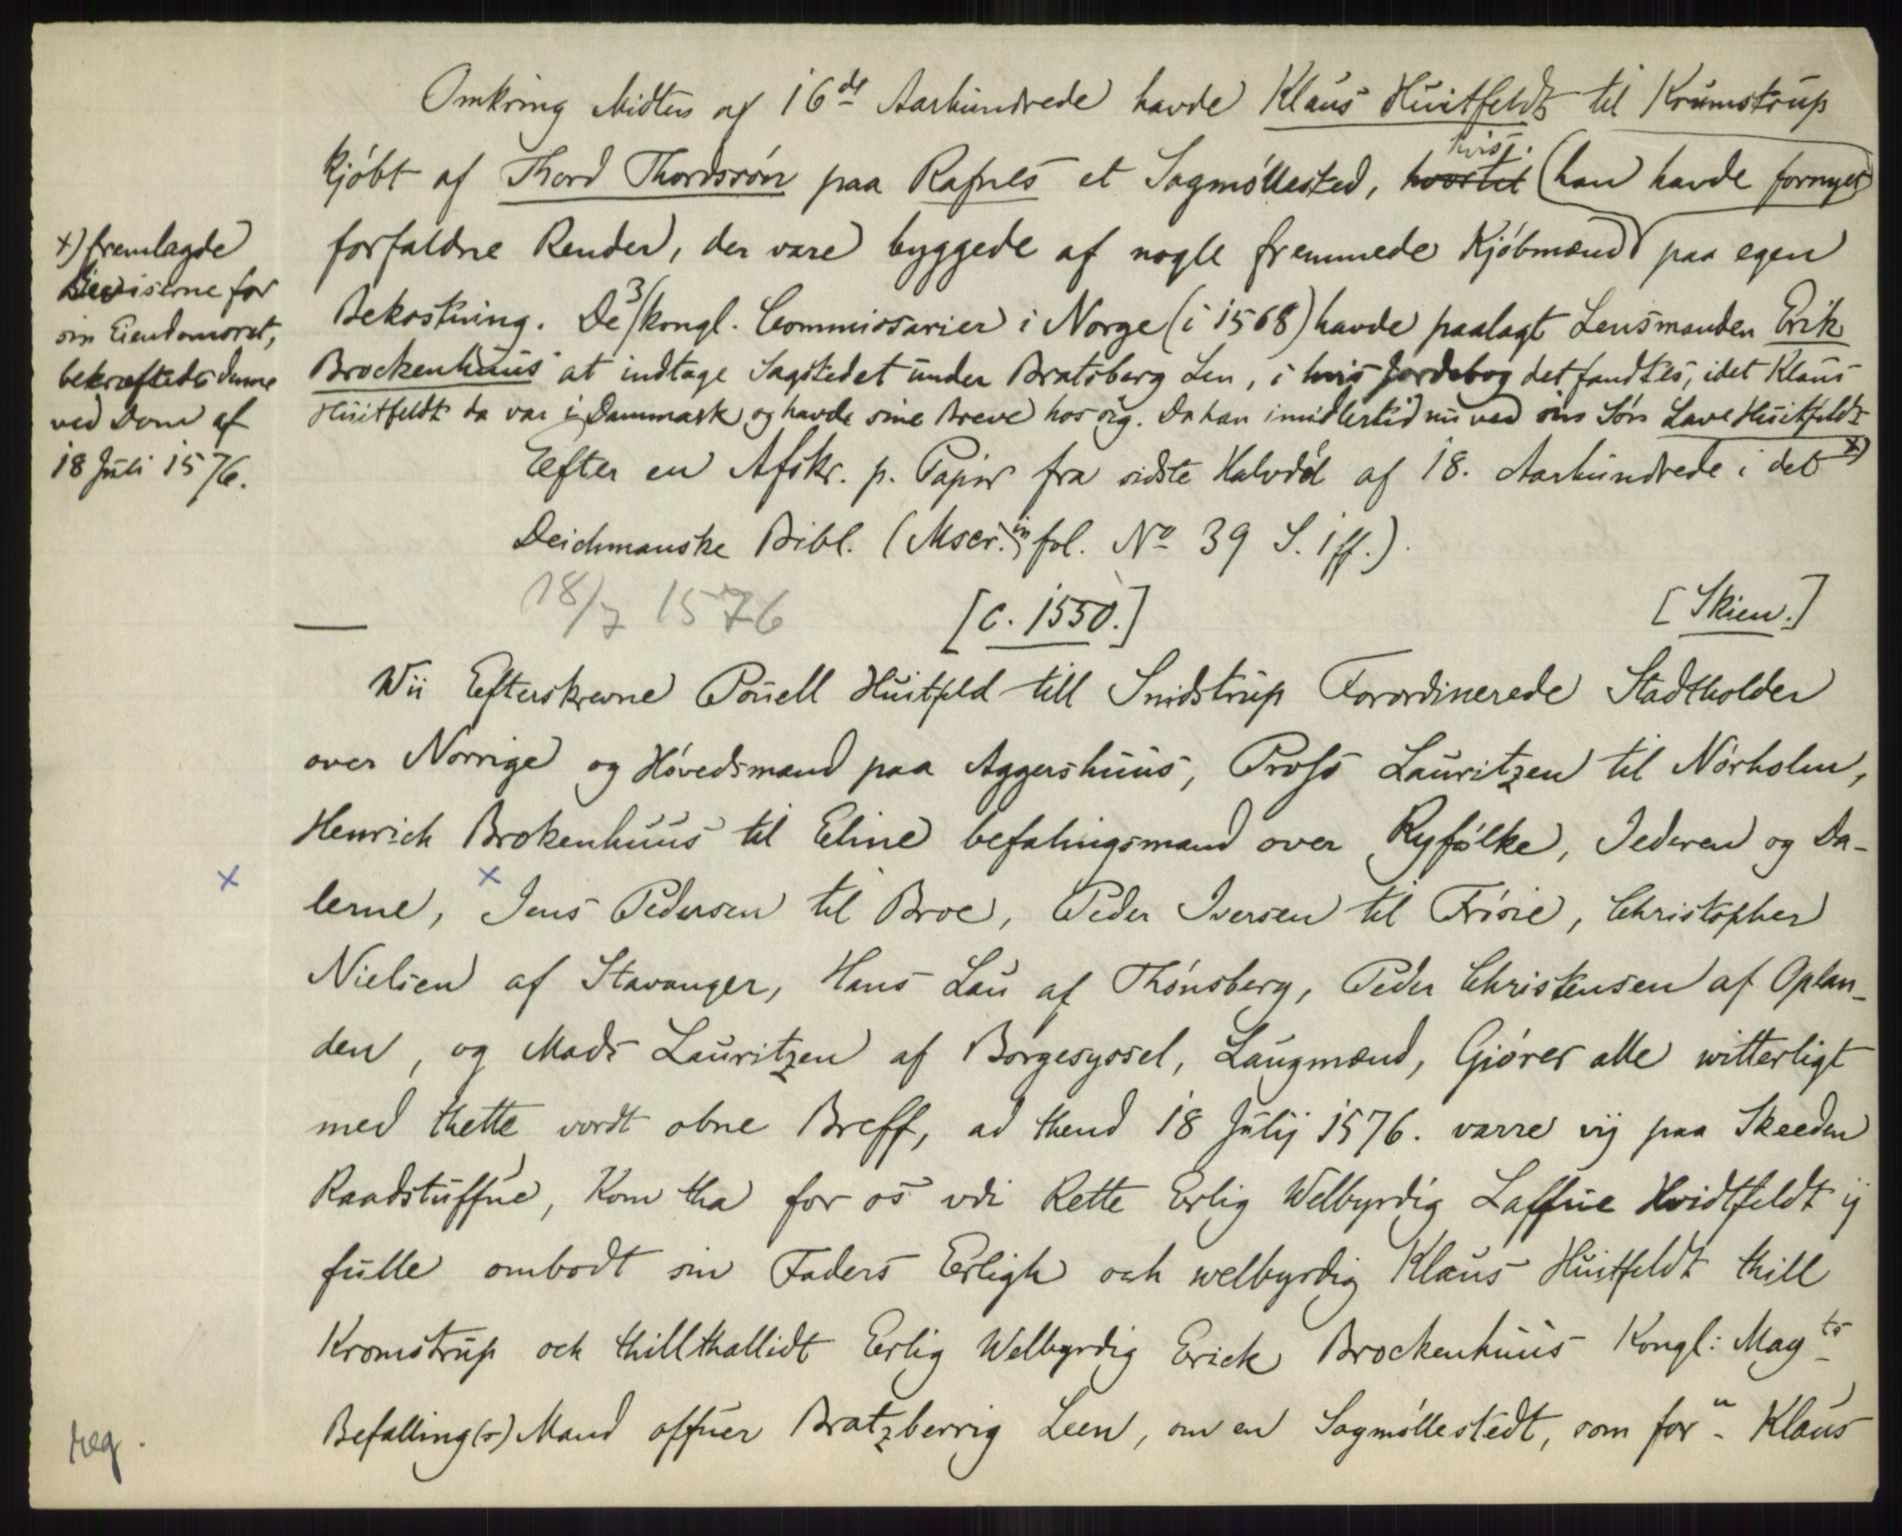 Omkring Midten af 16de Aarhundrede havde Klaus Huitfeldt til Krumstrup
kjöbt af Thord Thordssön paa Rafnes et Sagmöllested, hvortil hvis. (han havde fornyet)
forfaldne Render, der vare byggede af nogle fremmede Kjöbmænd paa egen
Bekostning. De 3 kongl. Commissarier i Norge (i 1568) havde paalagt Lensmanden Erik
Brockenhuus at indtage Sagstedet under Bratsberg Len, i hvis Jordebog det fandtes, idet Klaus
Huitfeldt da var i Danmark og havde sine Breve hos sig. Da han imidlertid nu ved sin Sön Lave Huitfeldt x)
x) fremlagde
Beviserne for
sin Eiendomsret,
bekræftedes denne
ved Dom af
18 Juli 1576.
Efter en Afskr. p. Papir fra sidste Halvdel af 18. Aarhundrede i det
Deichmanske Bibl. (Mscr. in fol. No 39 S. 1 ff.).
18/7 1576 [c. 1550.] [Skien.]
Wii Efterskrevne Pouell Huitfeld till Snidstrup Forordinerede Stadtholder
over Norrige og Hövedsmand paa Aggershuus, Profs Lauritzen til Nörholm,
Henrich Brokenhuus til Eline befalingsmand over Ryfölke, Jederen og Da-
lerne, x Jens Pedersen til Broe, Peder Iversen til Frösie, Christopher
x
Nielsen af Stavanger, Hans Lau af Thönsberg, Peder Christensen af Oplan-
den, og Mads Lauritzen af Borgesyssel, Laugmænd, Giörer alle witterligt
med thette vordt obne Breff, ad thend 18 Julij 1576. varre vij paa Skeeden
Raadstuffue, Kom tha for os vdi Rette Erlig Welbyrdig Laffue Hvidtfeldt ij
fulle ombodt sin Faders Erligh och welbyrdig Klaus Huitfeldt thill
Kromstrup och thillthallidt Erlig Welbyrdig Erick Brockenhuus Kongl: Mayts
Befalling(s) Mand offuer Bratzberrig Leen, om en Sagmöllestedt, som forn Klaus
reg.